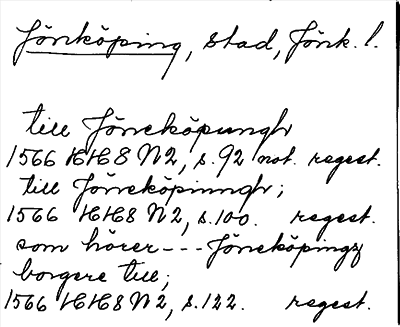 Jönköping, stad, Jönk. l.
till Jöneköpungh
1566 HH8 N2, s.92 not. regest.
till Jöneköpinngh;
1566 HH8 N2, s.100. regest.
som hörer --- Jöneköpingz
borgere till;
1566 HH8 N2, s.122. regest.